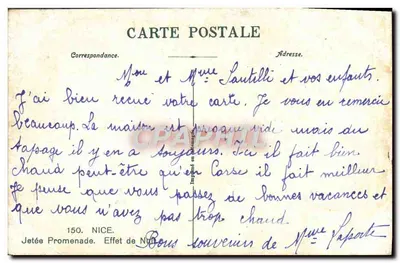 CARTE POSTALE
Correspondance. Adresse.
Mr et Mme Santelli et vos enfants.
J'ai bien recue votre carte. Je vous en remercie
beaucoup. La maison est presque vide mais du
tapage il y en a toujours. Ici il fait bien
chaud peut-être qu'en Corse il fait meilleur
Je pense que vous passez de bonnes vacances et
que vous n'avez pas trop chaud.
150. NICE.
Jetée Promenade. Effet de Nuit.
Bons souvenirs de Mme Laporte